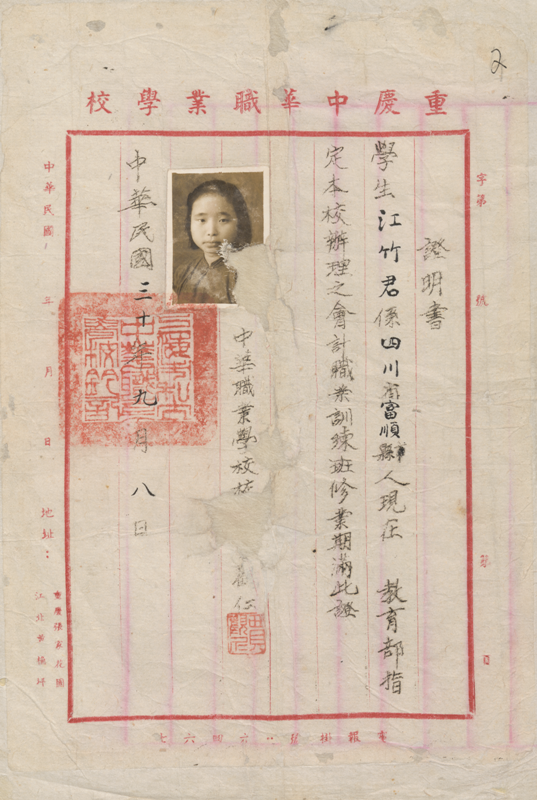 2
重慶中華職業學校
字第 號
第 頁
證明書
學生江竹君係四川省富順縣人現在 教育部指
定本校辦理之會計職業訓練班修業期滿此證
中華職業學校校
中華民國三十年九月八日
中華民國 年 月 日
地址：
重慶張家花園
江北黃桷坪
電報掛號 六